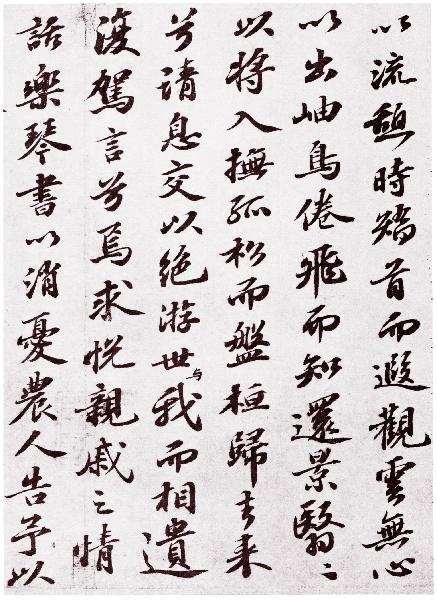 以流憩時矯首而遐觀雲無心
以出岫鳥倦飛而知還景翳〻
以將入撫孤松而盤桓歸去来
兮請息交以絶游世与我而相遺
復駕言兮焉求悦親戚之情
話樂琴書以消憂農人告予以